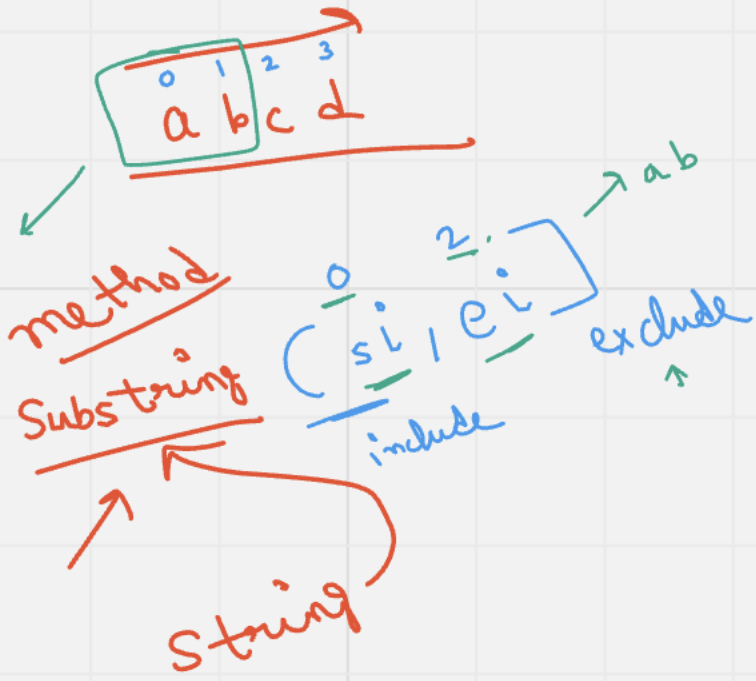 0 1 2 3
a b c d
ab
0 2
method
Substring (si, ei]
exclude
include
String